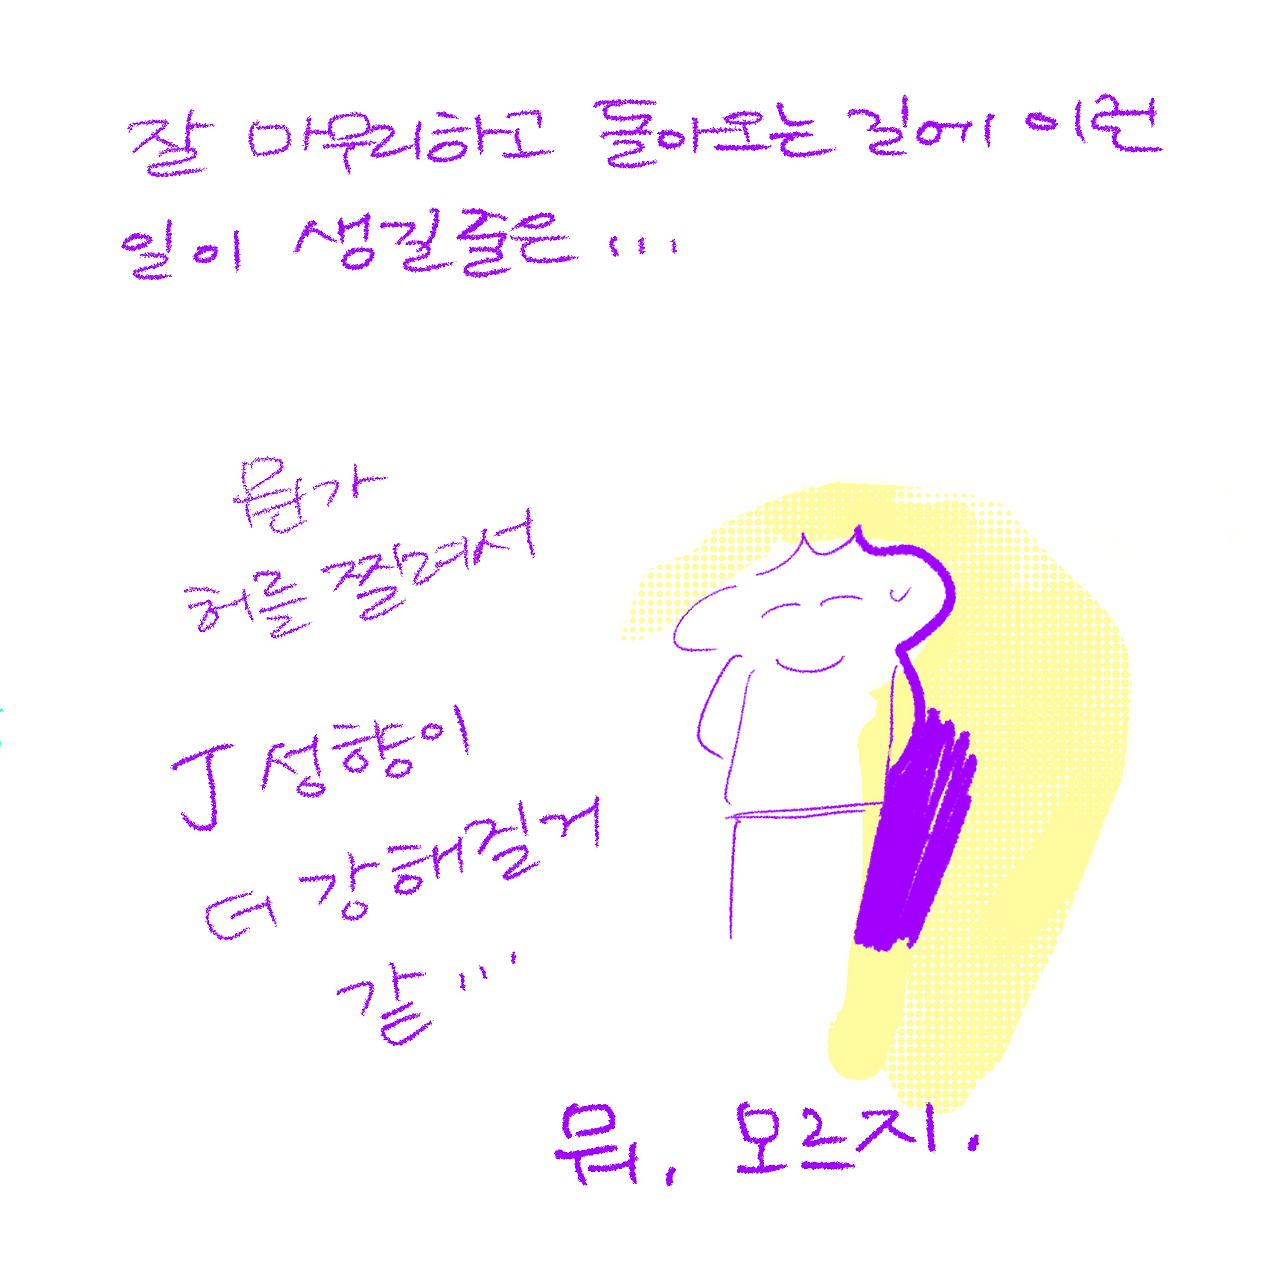 잘 마무리하고 돌아오는 길에 이런
일이 생길줄은...
뭔가
허를 찔려서
J 성향이
더 강해질거
같...
뭐, 모르지.